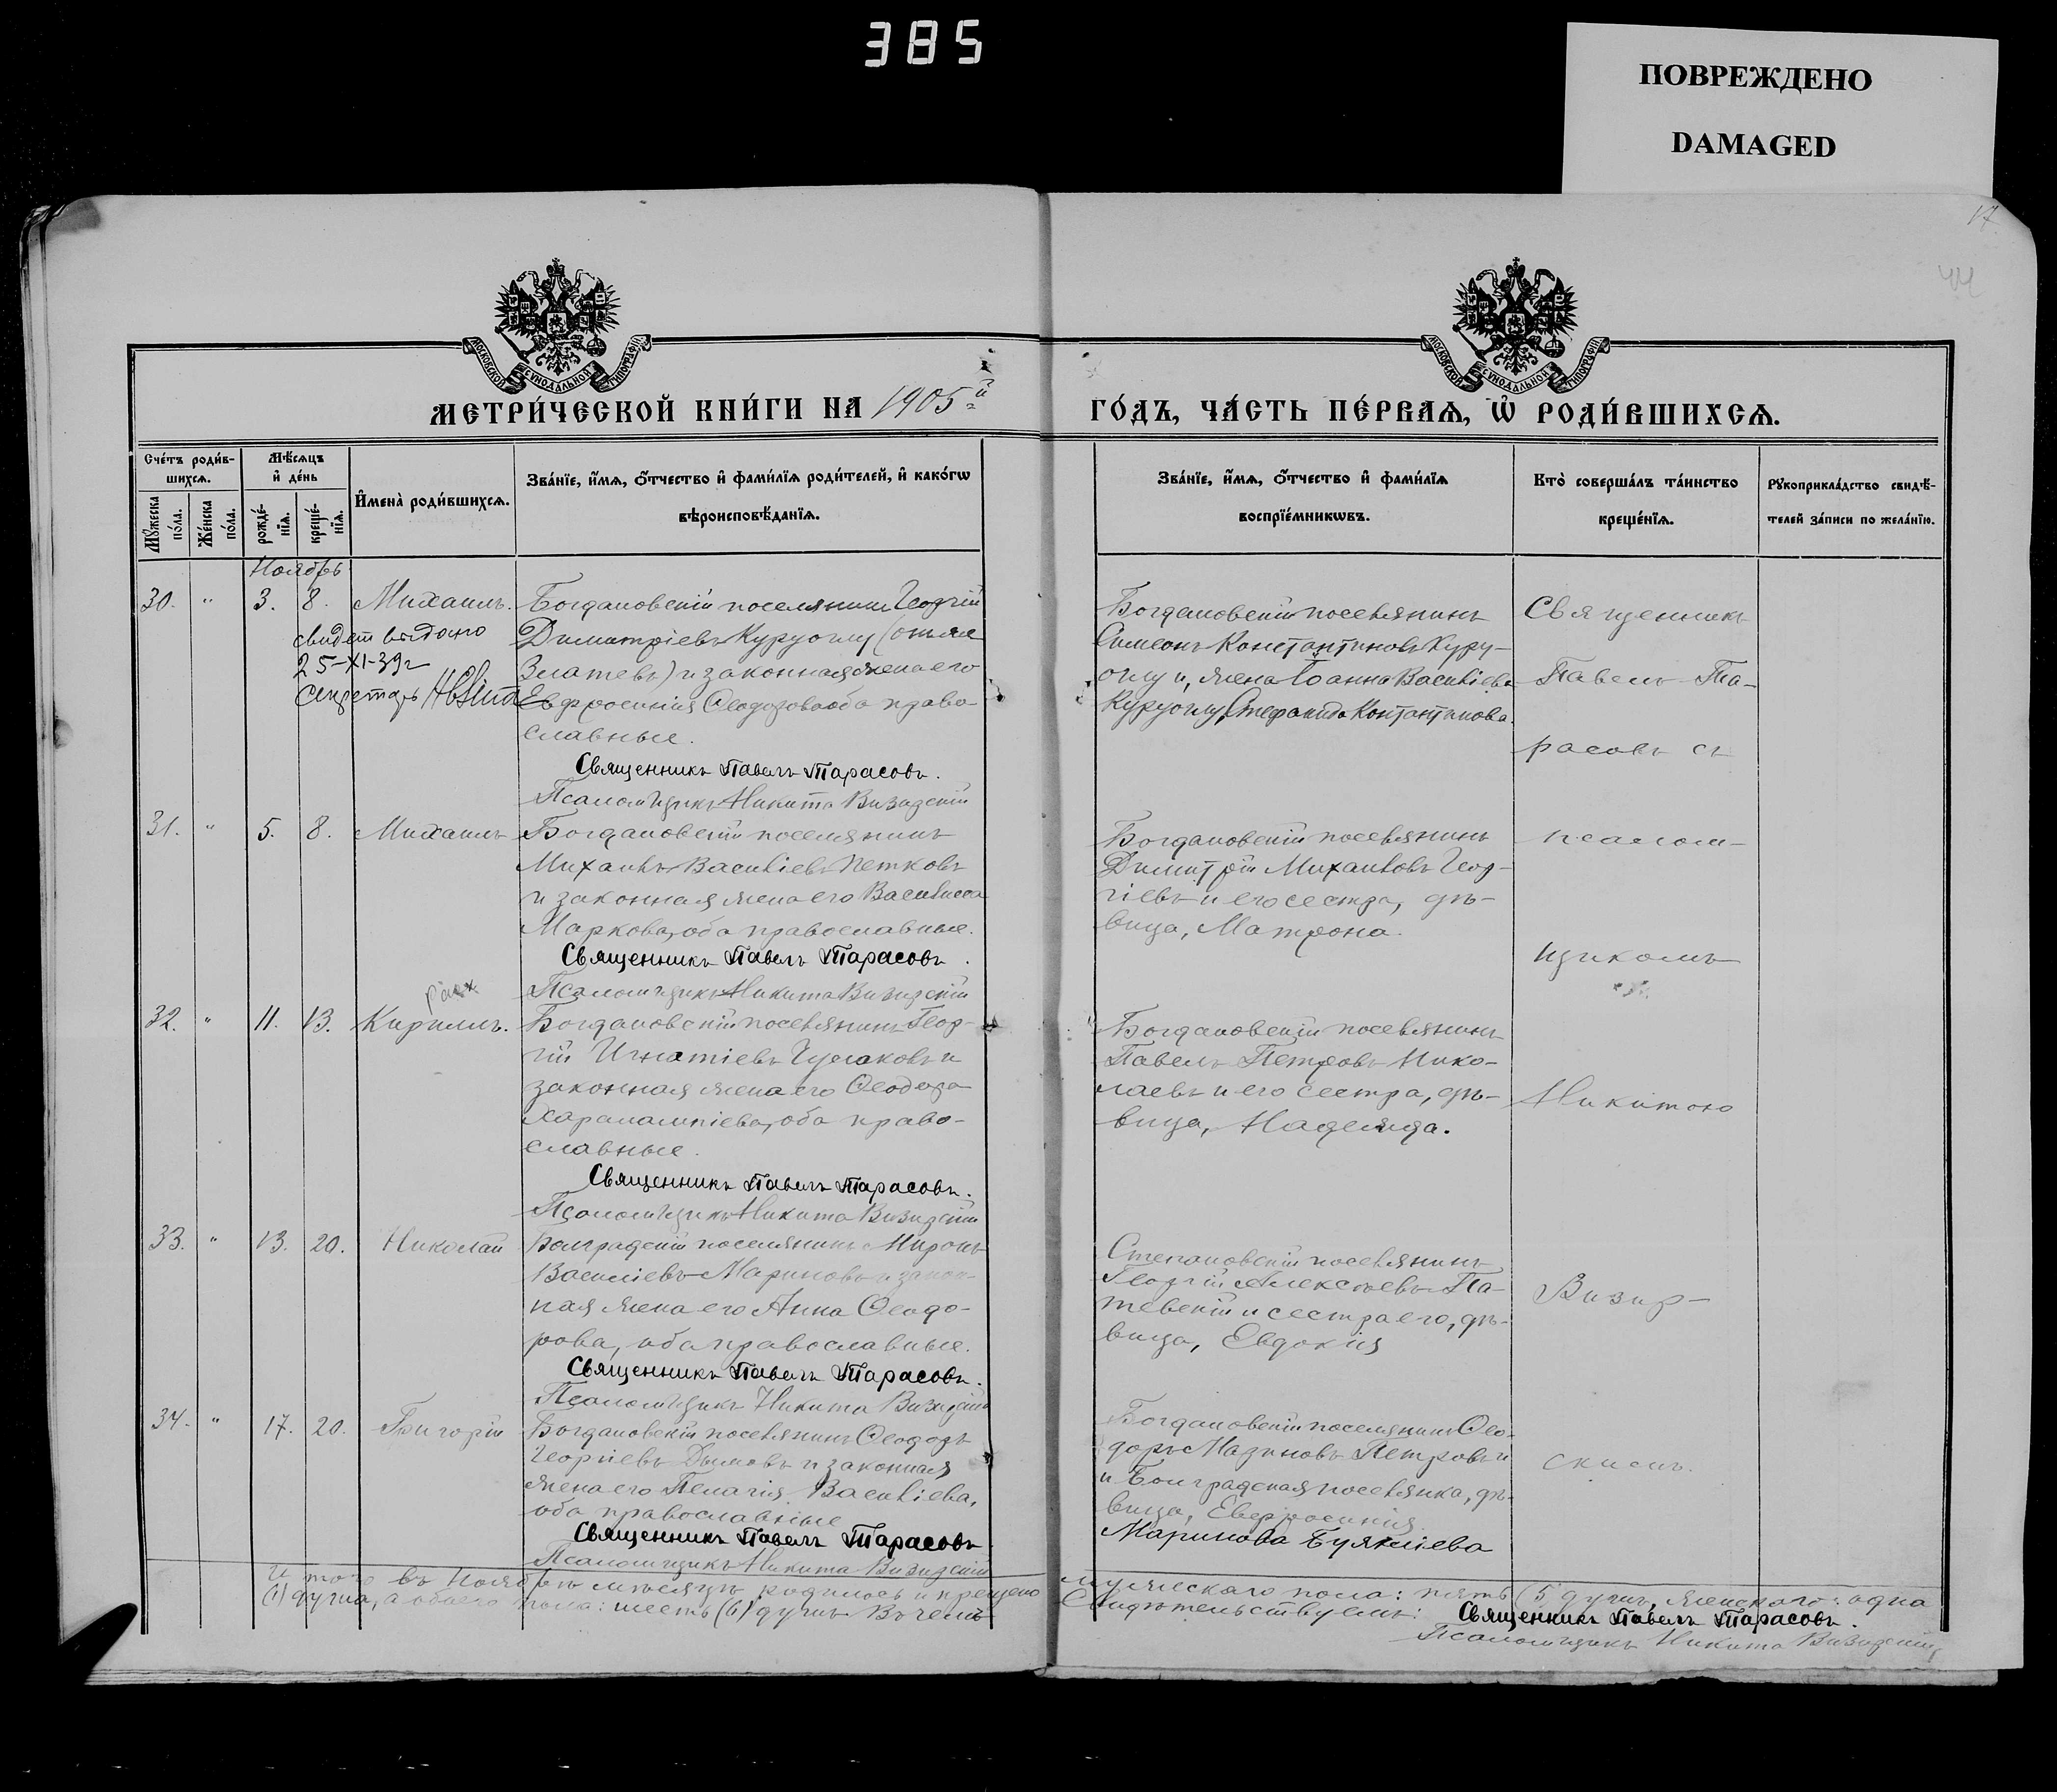 385
ПОВРЕЖДЕНО
DAMAGED
17
44
МОСКОВСКОЙ СУНОДАЛЬНОЙ ТИПОГРАФІИ
МОСКОВСКОЙ СУНОДАЛЬНОЙ ТИПОГРАФІИ
МЕТРИ́ЧЕСКОЙ КНИ́ГИ НА 1905й
ГО́ДЪ, ЧА́СТЬ ПЕ́РВАѦ, Ѽ РОДИ́ВШИХСѦ.
Сче́тъ роди́в-
шихсѧ.
Мѣ́сѧцъ
и҆ де́нь
Мꙋ́жеска
по́ла.
Же́нска
по́ла.
рожде́-
нїѧ.
креще́-
нїѧ.
И҆мена̀ роди́вшихсѧ.
Зва́нїе, и҆́мѧ, ѻ҆́тчество и҆ фами́лїѧ роди́телей, и҆ како́гѡ
вѣроисповѣ́данїѧ.
Зва́нїе, и҆́мѧ, ѻ҆́тчество и҆ фами́лїѧ
воспрїе́мникѡвъ.
Кто̀ соверша́лъ та́инство
креще́нїѧ.
Рꙋкоприкла́дство свидѣ́-
телей за́писи по жела́нїю.
Ноябрь
30. " 3. 8. Михаилъ.
свидет выдано
25-XI-39г
Секретарь
Богдановскій поселянинъ Георгій
Димитріевъ Куруогlu (онъ же
Златевъ) и законная жена его
Евфросинія Ѳеодорова оба право-
славные.
Священникъ Павелъ Тарасовъ.
Псаломщикъ Никита Визирскій
Богдановскій поселянинъ
Симеонъ Константиновъ Куру-
оглу и, жена Іоанна Васильева
Куруоглу, Стефанида Константинова.
31. " 5. 8. Михаилъ
Богдановскій поселянинъ
Михаилъ Васильевъ Петковъ
и законная жена его Василисса
Маркова, оба православные.
Священникъ Павелъ Тарасовъ.
Псаломщикъ Никита Визирскій
Богдановскій поселянинъ
Димитрій Михаиловъ Геор-
гіевъ и его сестра, дѣ-
вица, Матрона.
32. " 11. 13. Кириллъ.
Богдановскій поселянинъ Геор-
гій Игнатіевъ Чумаковъ и
законная жена его Ѳеодора
Харалампіева, оба право-
славные.
Священникъ Павелъ Тарасовъ.
Псаломщикъ Никита Визирскій
Богдановскій поселянинъ
Павелъ Петровъ Нико-
лаевъ и его сестра, дѣ-
вица, Надежда.
33. " 13. 20. Николай
Болградскій поселянинъ Миронъ
Василіевъ Мариновъ и закон-
ная жена его Анна Ѳеодо-
рова, оба православные.
Священникъ Павелъ Тарасовъ.
Псаломщикъ Никита Визирскій
Степановскій поселянинъ
Георгій Алексѣевъ Па-
тевскій и сестра его, дѣ-
вица, Евдокія
34. " 17. 20. Григорій
Богдановскій поселянинъ Ѳеодоръ
Георгіевъ Дымовъ и законная
жена его Пелагія Васильева,
оба православные
Священникъ Павелъ Тарасовъ
Псаломщикъ Никита Визирскій
Богдановскій поселянинъ Ѳео-
доръ Петровъ и
и Болградская поселянка, дѣ-
вица, Евфросинія
Маринова Буяклиева
Священникъ
Павелъ Та-
расовъ съ
псалом-
щикомъ
Никитою
Визир-
скимъ.
Итого въ Ноябрѣ мѣсяцѣ родилось и крещено мужескаго пола: пять (5) душъ, женскаго: одна
(1) душа, а обоего пола: шесть (6) душъ. Въ чемъ свидѣтельствуемъ: Священникъ Павелъ Тарасовъ.
Псаломщикъ Никита Визирскій